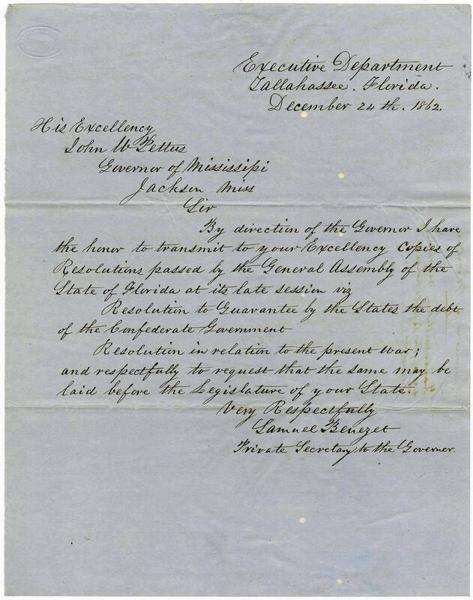 Executive Department
Tallahassee. Florida.
December 24th. 1862.
His Excellency
John W Pettus
Governor of Mississipi
Jackson Miss
Sir
By direction of the Governor I have
the honor to transmit to your Excellency Copies of
Resolutions passed by the General Assembly of the
State of Florida at its late session viz
Resolution to Guarantee by the States the debt
of the Confederate Government
Resolution in relation to the present war;
and respectfully to request that the same may be
laid before the Legislature of your State.
Very Respectfully
Samuel Benezet
Private Secretary to the Governor.